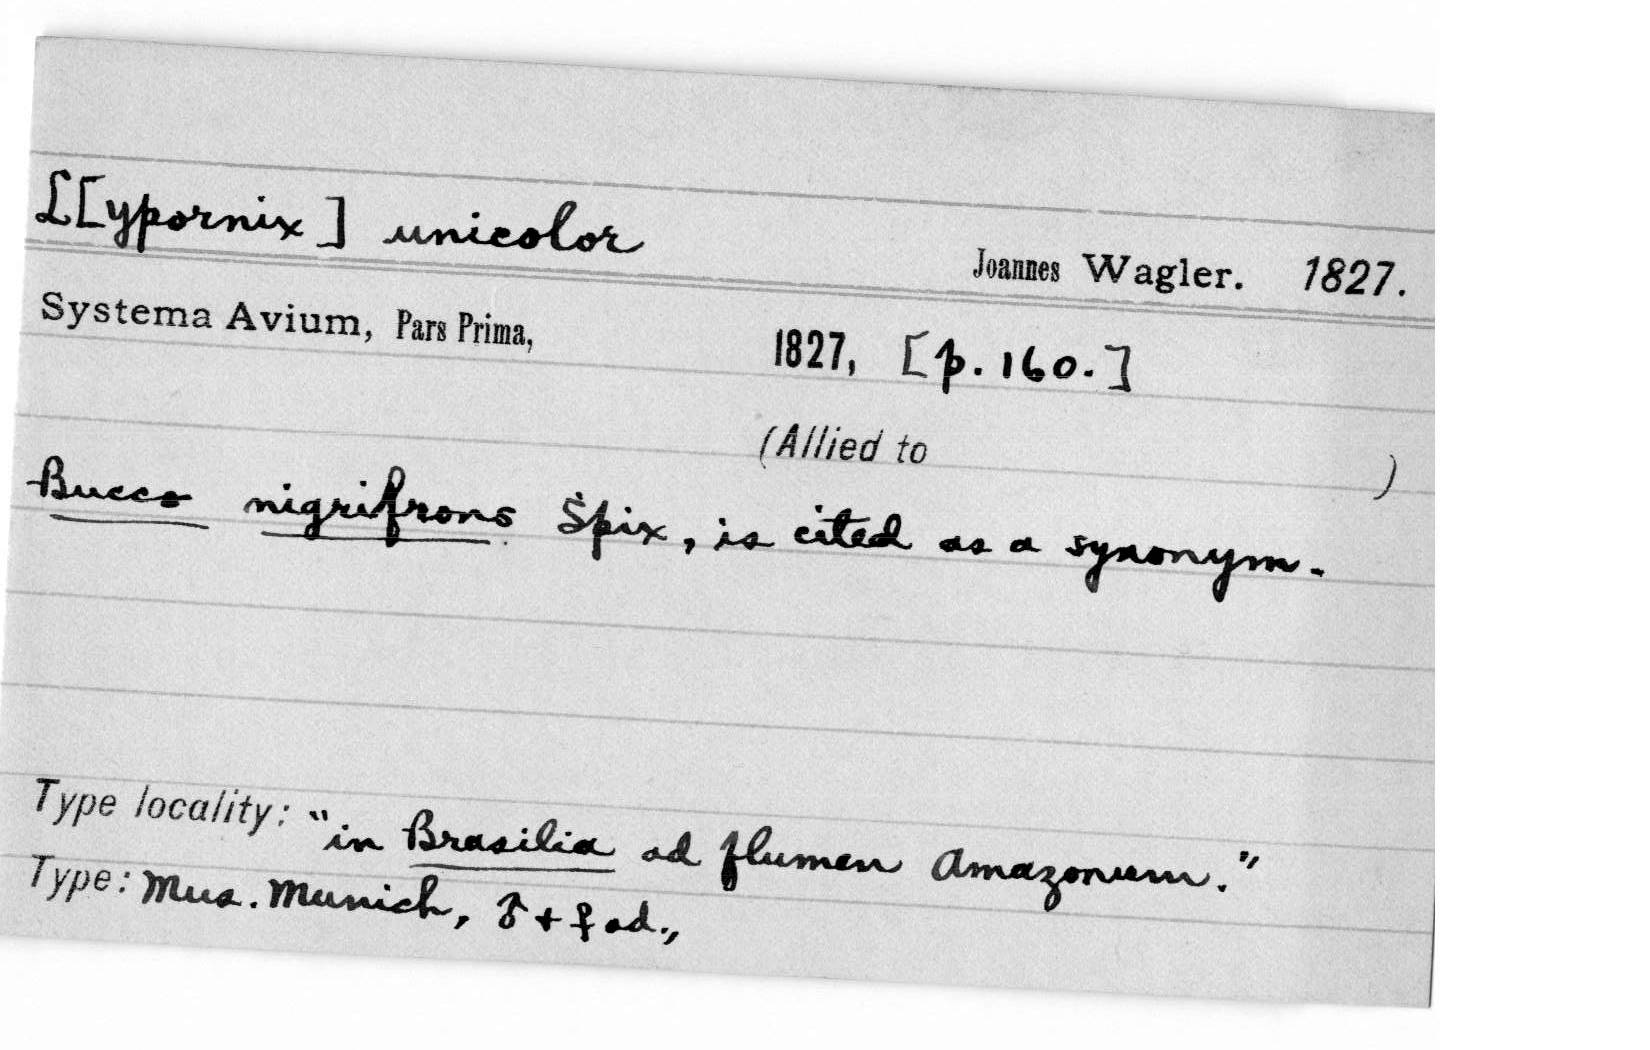 L[ypornix] unicolor
Joannes Wagler. 1827.
Systema Avium, Pars Prima, 1827, [p. 160.]
(Allied to )
Bucco nigrifrons Spix, is cited as a synonym.
Type locality: "in Brasilia ad flumen Amazonum."
Type: Mus. Munich, ♂ + ♀ ad.,